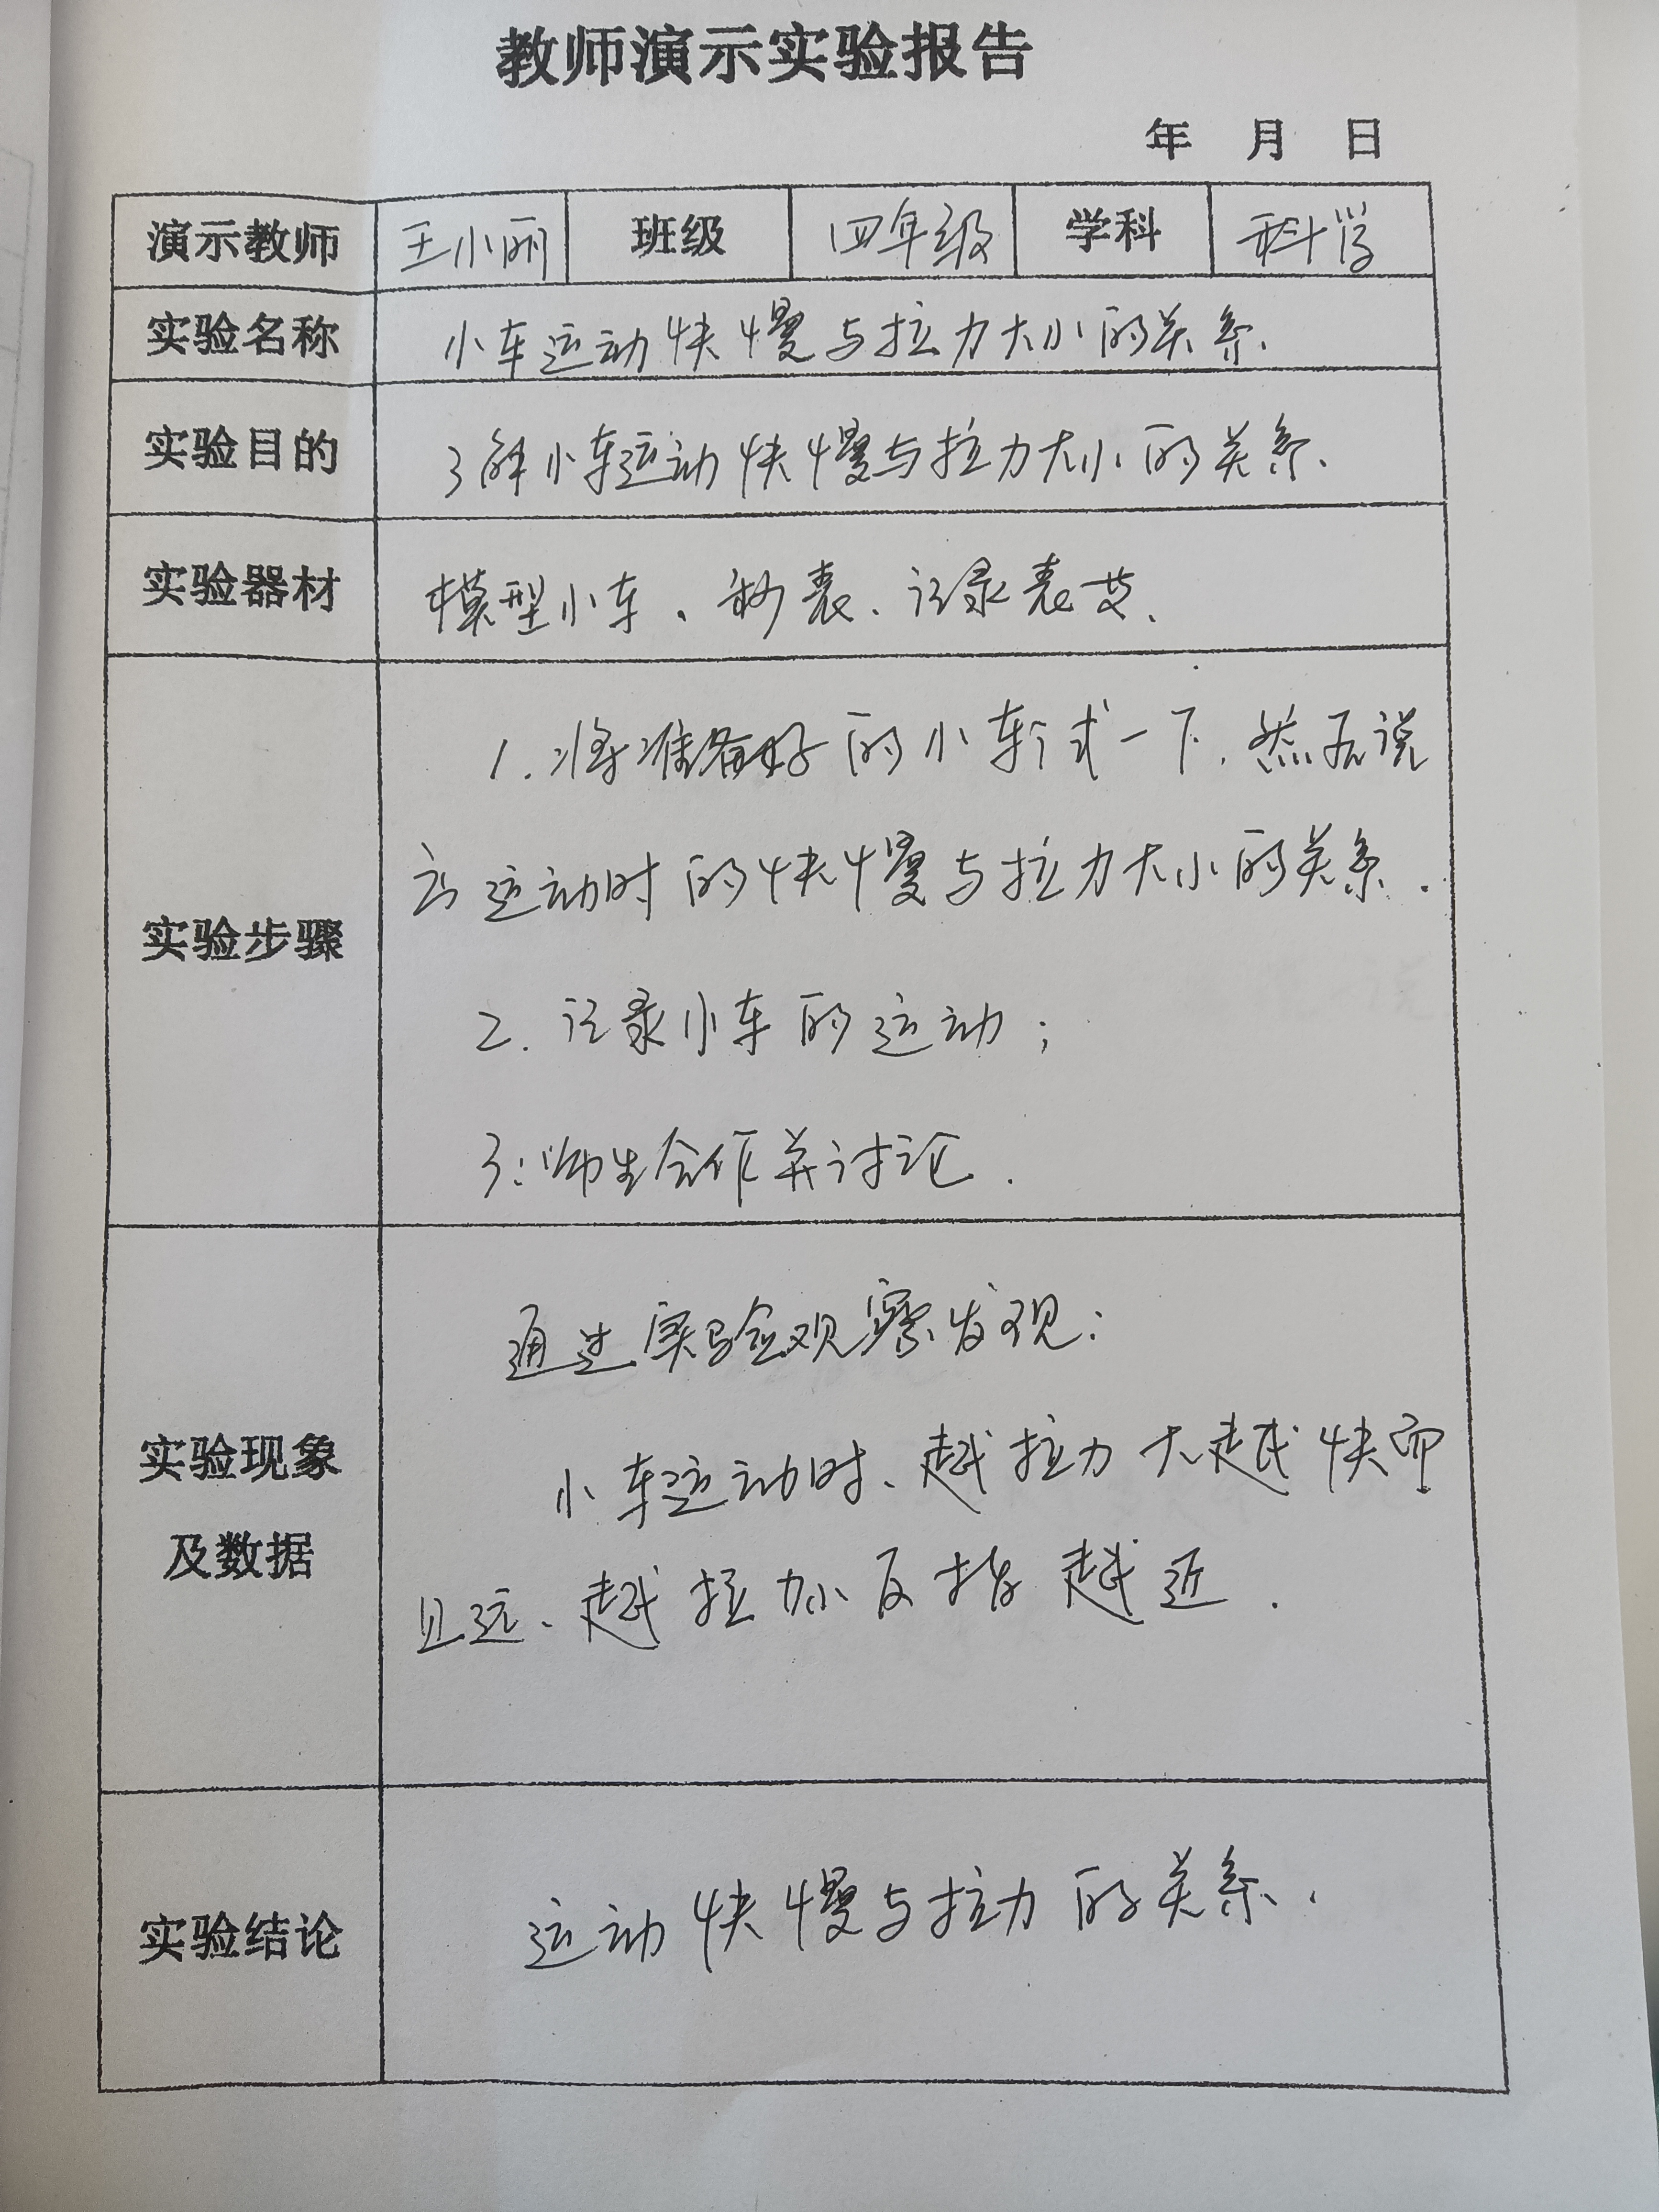 教师演示实验报告
年 月 日
演示教师 王小丽 班级 四年级 学科 科学
实验名称 小车运动快慢与拉力大小的关系.
实验目的 了解小车运动快慢与拉力大小的关系.
实验器材 模型小车、秒表、记录表等.
实验步骤
1.将准备好的小车试一下.然后说
云运动时的快慢与拉力大小的关系.
2.记录小车的运动;
3:师生合作并讨论.
实验现象
及数据
通过实验观察发现:
小车运动时、越拉力大越快而
且远、越拉力小反指越近.
实验结论 运动快慢与拉力的关系.